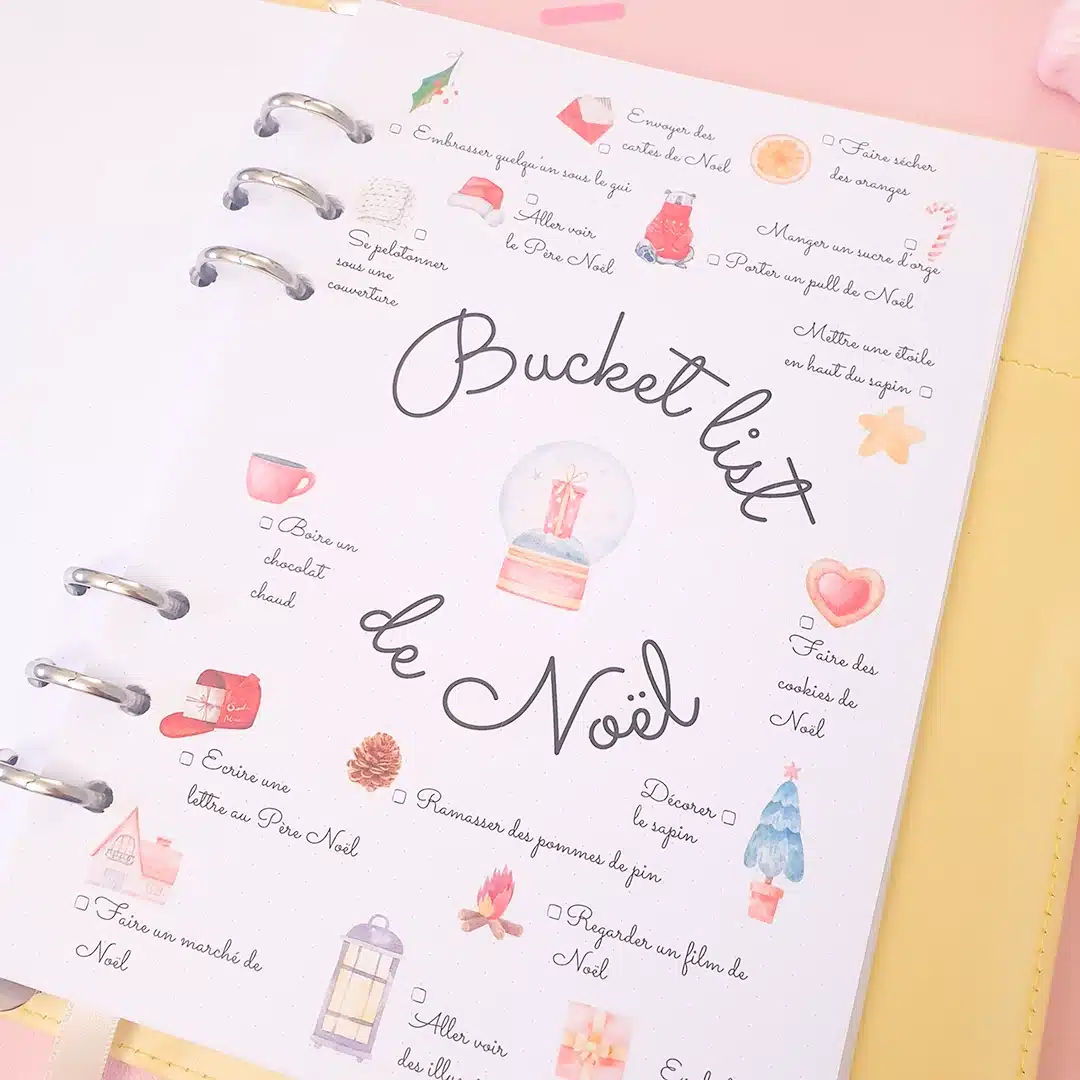 Embrasser quelqu'un sous le gui
Envoyer des
cartes de Noël
Faire sécher
des oranges
Se pelotonner
sous une
couverture
Aller voir
le Père Noël
Porter un pull de Noël
Manger un sucre d'orge
Mettre une étoile
en haut du sapin
Bucket list
de Noël
Boire un
chocolat
chaud
Faire des
cookies de
Noël
Ecrire une
lettre au Père Noël
Ramasser des pommes de pin
Décorer
le sapin
Faire un marché de
Noël
Regarder un film de
Noël
Aller voir
des